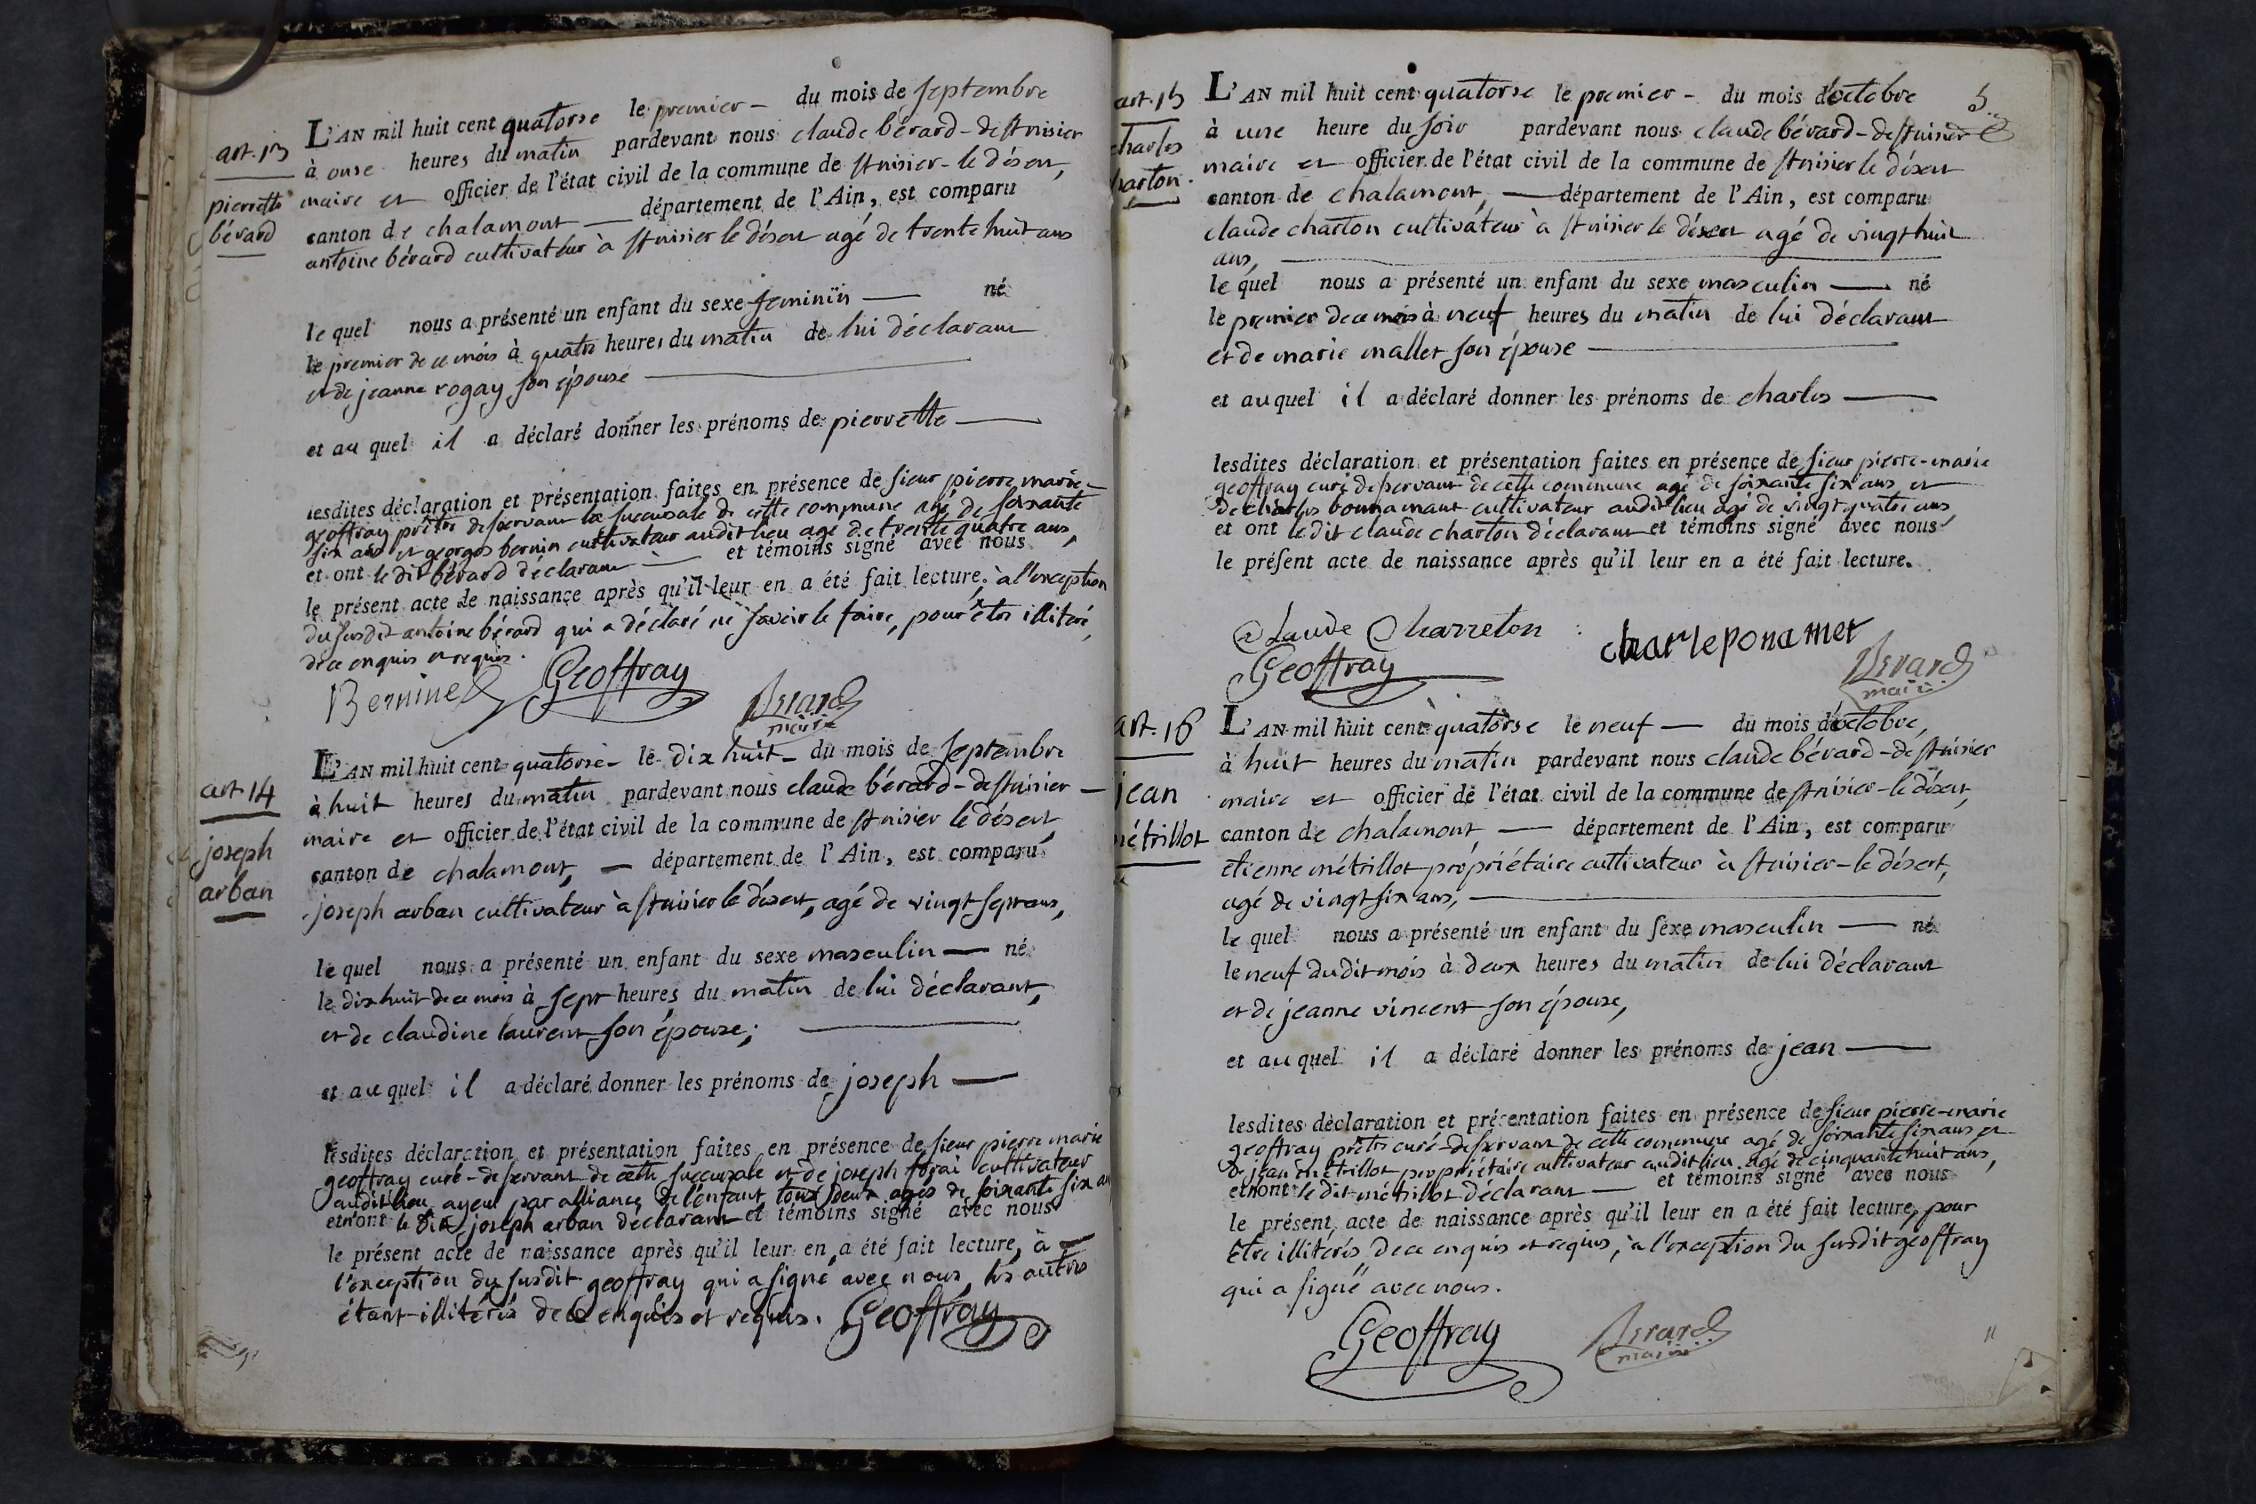 art. 13
pierrette
bérard
L'AN mil huit cent quatorse le premier - du mois de septembre
à onse heures du matin pardevant nous claude bérard - de st nisier
maire et officier de l'état civil de la commune de st nisier - le désert,
canton de chalamont — département de l'Ain, est comparu
antoine bérard cultivateur à st nisier le désert agé de trente huit ans
le quel nous a présenté un enfant du sexe feminin — né
le premier de ce mois à quatre heures du matin de lui déclarant
et de jeanne rogay son épouse —
et au quel il a déclaré donner les prénoms de pierrette —
lesdites déclaration et présentation faites en présence de sieur pierre marie -
geoffray prêtre desservant la succursale de cette commune agé de soixante
six ans et georges bernin cultivateur audit lieu agé de trente quatre ans,
et ont le dit bérard déclarant — et témoins signé avec nous
le présent acte de naissance après qu'il leur en a été fait lecture, à l'exception
du susdit antoine bérard qui a déclaré ne savoir le faire, pour être illiteré,
de ce enquis et requis.
Bernine Geoffray Bérard
maire
art. 14
joseph
arban
L'AN mil huit cent quatorse - le dix huit - du mois de septembre
à huit heures du matin pardevant nous claude bérard - de st nisier —
maire et officier de l'état civil de la commune de st nisier le désert,
canton de chalamont, — département de l'Ain, est comparu
joseph arban cultivateur à st nisier le désert, agé de vingt sept ans,
le quel nous a présenté un enfant du sexe masculin — né
le dix huit de ce mois à sept heures du matin de lui déclarant,
et de claudine laurent son épouse; —
et au quel il a déclaré donner les prénoms de joseph —
lesdites déclaration et présentation faites en présence de sieur pierre marie
geoffray curé - desservant de cette succursale et de joseph forai cultivateur
audit lieu, ayeul par alliance de l'enfant tous deux agés de soixante six ans
et n'ont le dit joseph arban déclarant et témoins signé avec nous
le présent acte de naissance après qu'il leur en a été fait lecture, à —
l'exception du susdit geoffray qui a signé avec nous, les autres
étant illitérés de ce enquis et requis. Geoffray
5.
art. 15
charles
charton.
L'AN mil huit cent quatorse le premier - du mois d'octobre
à une heure du soir pardevant nous claude bérard - de st nisier
maire et officier de l'état civil de la commune de st nisier le désert
canton de chalamont, — département de l'Ain, est comparu
claude charton cultivateur à st nisier le désert agé de vingt huit
ans, —
le quel nous a présenté un enfant du sexe masculin — né
le premier de ce mois à neuf heures du matin de lui déclarant
et de marie mallet son épouse —
et au quel il a déclaré donner les prénoms de charles —
lesdites déclaration et présentation faites en présence de sieur pierre - marie
geoffray curé desservant de cette commune agé de soixante six ans et
de charles bonnamant cultivateur audit lieu agé de vingt quatre ans,
et ont le dit claude charton déclarant et témoins signé avec nous
le présent acte de naissance après qu'il leur en a été fait lecture.
Claude Charreton charleponamet
Geoffray Bérard
maire
art. 16
jean
métrillot
L'AN mil huit cent quatorse le neuf — du mois d'octobre,
à huit heures du matin pardevant nous claude bérard - de st nisier
maire et officier de l'état civil de la commune de st nisier - le désert,
canton de chalamont, — département de l'Ain, est comparu
etienne métrillot propriétaire cultivateur à st nisier - le désert,
agé de vingt six ans, —
le quel nous a présenté un enfant du sexe masculin — né
le neuf dudit mois à deux heures du matin de lui déclarant
et de jeanne vincent son épouse,
et au quel il a déclaré donner les prénoms de jean —
lesdites déclaration et présentation faites en présence de sieur pierre - marie
geoffray prêtre curé - desservant de cette commune agé de soixante six ans et
de jean métrillot propriétaire cultivateur audit lieu agé de cinquante huit ans,
et n'ont le dit métrillot déclarant — et témoins signé avec nous
le présent acte de naissance après qu'il leur en a été fait lecture, pour
être illitérés, de ce enquis et requis, à l'exception du susdit geoffray
qui a signé avec nous.
Geoffray Bérard
maire